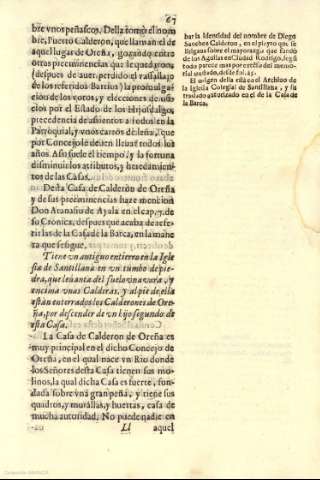 67
bre vnos peñascos. Della tomò el nom
bre, Puerto Calderon, que llaman el de
aquel lugar de Oreña, gozando entre
otras preeminencias que le quedaron
(despues de auer perdido el vassallaje
de los referidos Barrios) la promulga
ción de los votos, y elecciones de usos
cios por el Estado de los Hijosdalgo,
precedencia de assientos a todos en la
Parroquial, y vnos carros de leña, que
por Concejo le deuen lleuar todos los
años. Assi suele el tiempo, y la fortuna
disminuir los atributos, y heredamien
tos de las Casas.
Desta Casa de Calderon de Oreña
y de sus preeminencias haze mencion
Don Atanasio de Ayala en el cap. 7. de
su Cronica, despues que acaba de refe-
rir las de la Casa de la Barca, en la mane
ra que se sigue.
Tiene vn antiguo entierro en la Igle
sia de Santillana en vn tumbo de pie
dra, que leuanta del suelo vna vara, y
encima vnas Calderas, y al pie de ella
estàn enterrados los Calderones de Ore
ña, por descender de vn hijo segundo de
esta Casa.
La Casa de Calderon de Oreña es
muy principal en el dicho Concejo de
Oreña, en el qual nace vn Rio donde
los Señores desta Casa tienen sus mo-
linos, la qual dicha Casa es fuerte, fun-
dada sobre vna gran peña, y tiene sus
quadros, y murallas, y huertas, casa de
mucha autoridad. No puede nadie en
Ll aquel
bar la identidad del nombre de Diego
Sanchez Calderon, en el pleyto que se
litigaua sobre el mayorazgo que fundò
de los Aguilas en Ciudad Rodrigo, le que
todo parece mas por extèso del memo-
rial ajustado, desde fol. 45.
El origen della està en el Archiuo de
la Iglesia Colegial de Santillana, y su
traslado autorizado en el de la Casa de
la Barca.